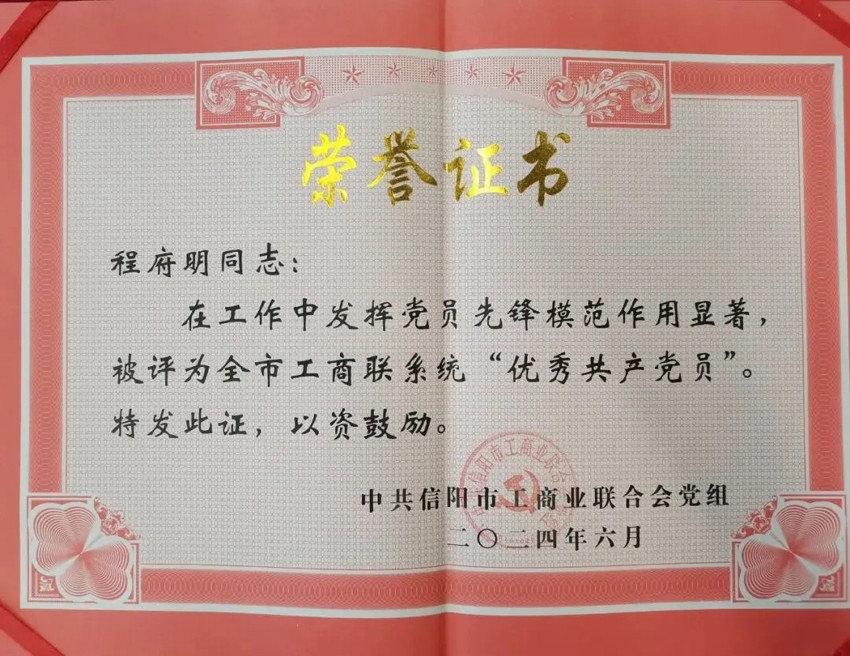 荣誉证书
程府明同志：
在工作中发挥党员先锋模范作用显著，
被评为全市工商联系统“优秀共产党员”。
特发此证，以资鼓励。
中共信阳市工商业联合会党组
二〇二四年六月